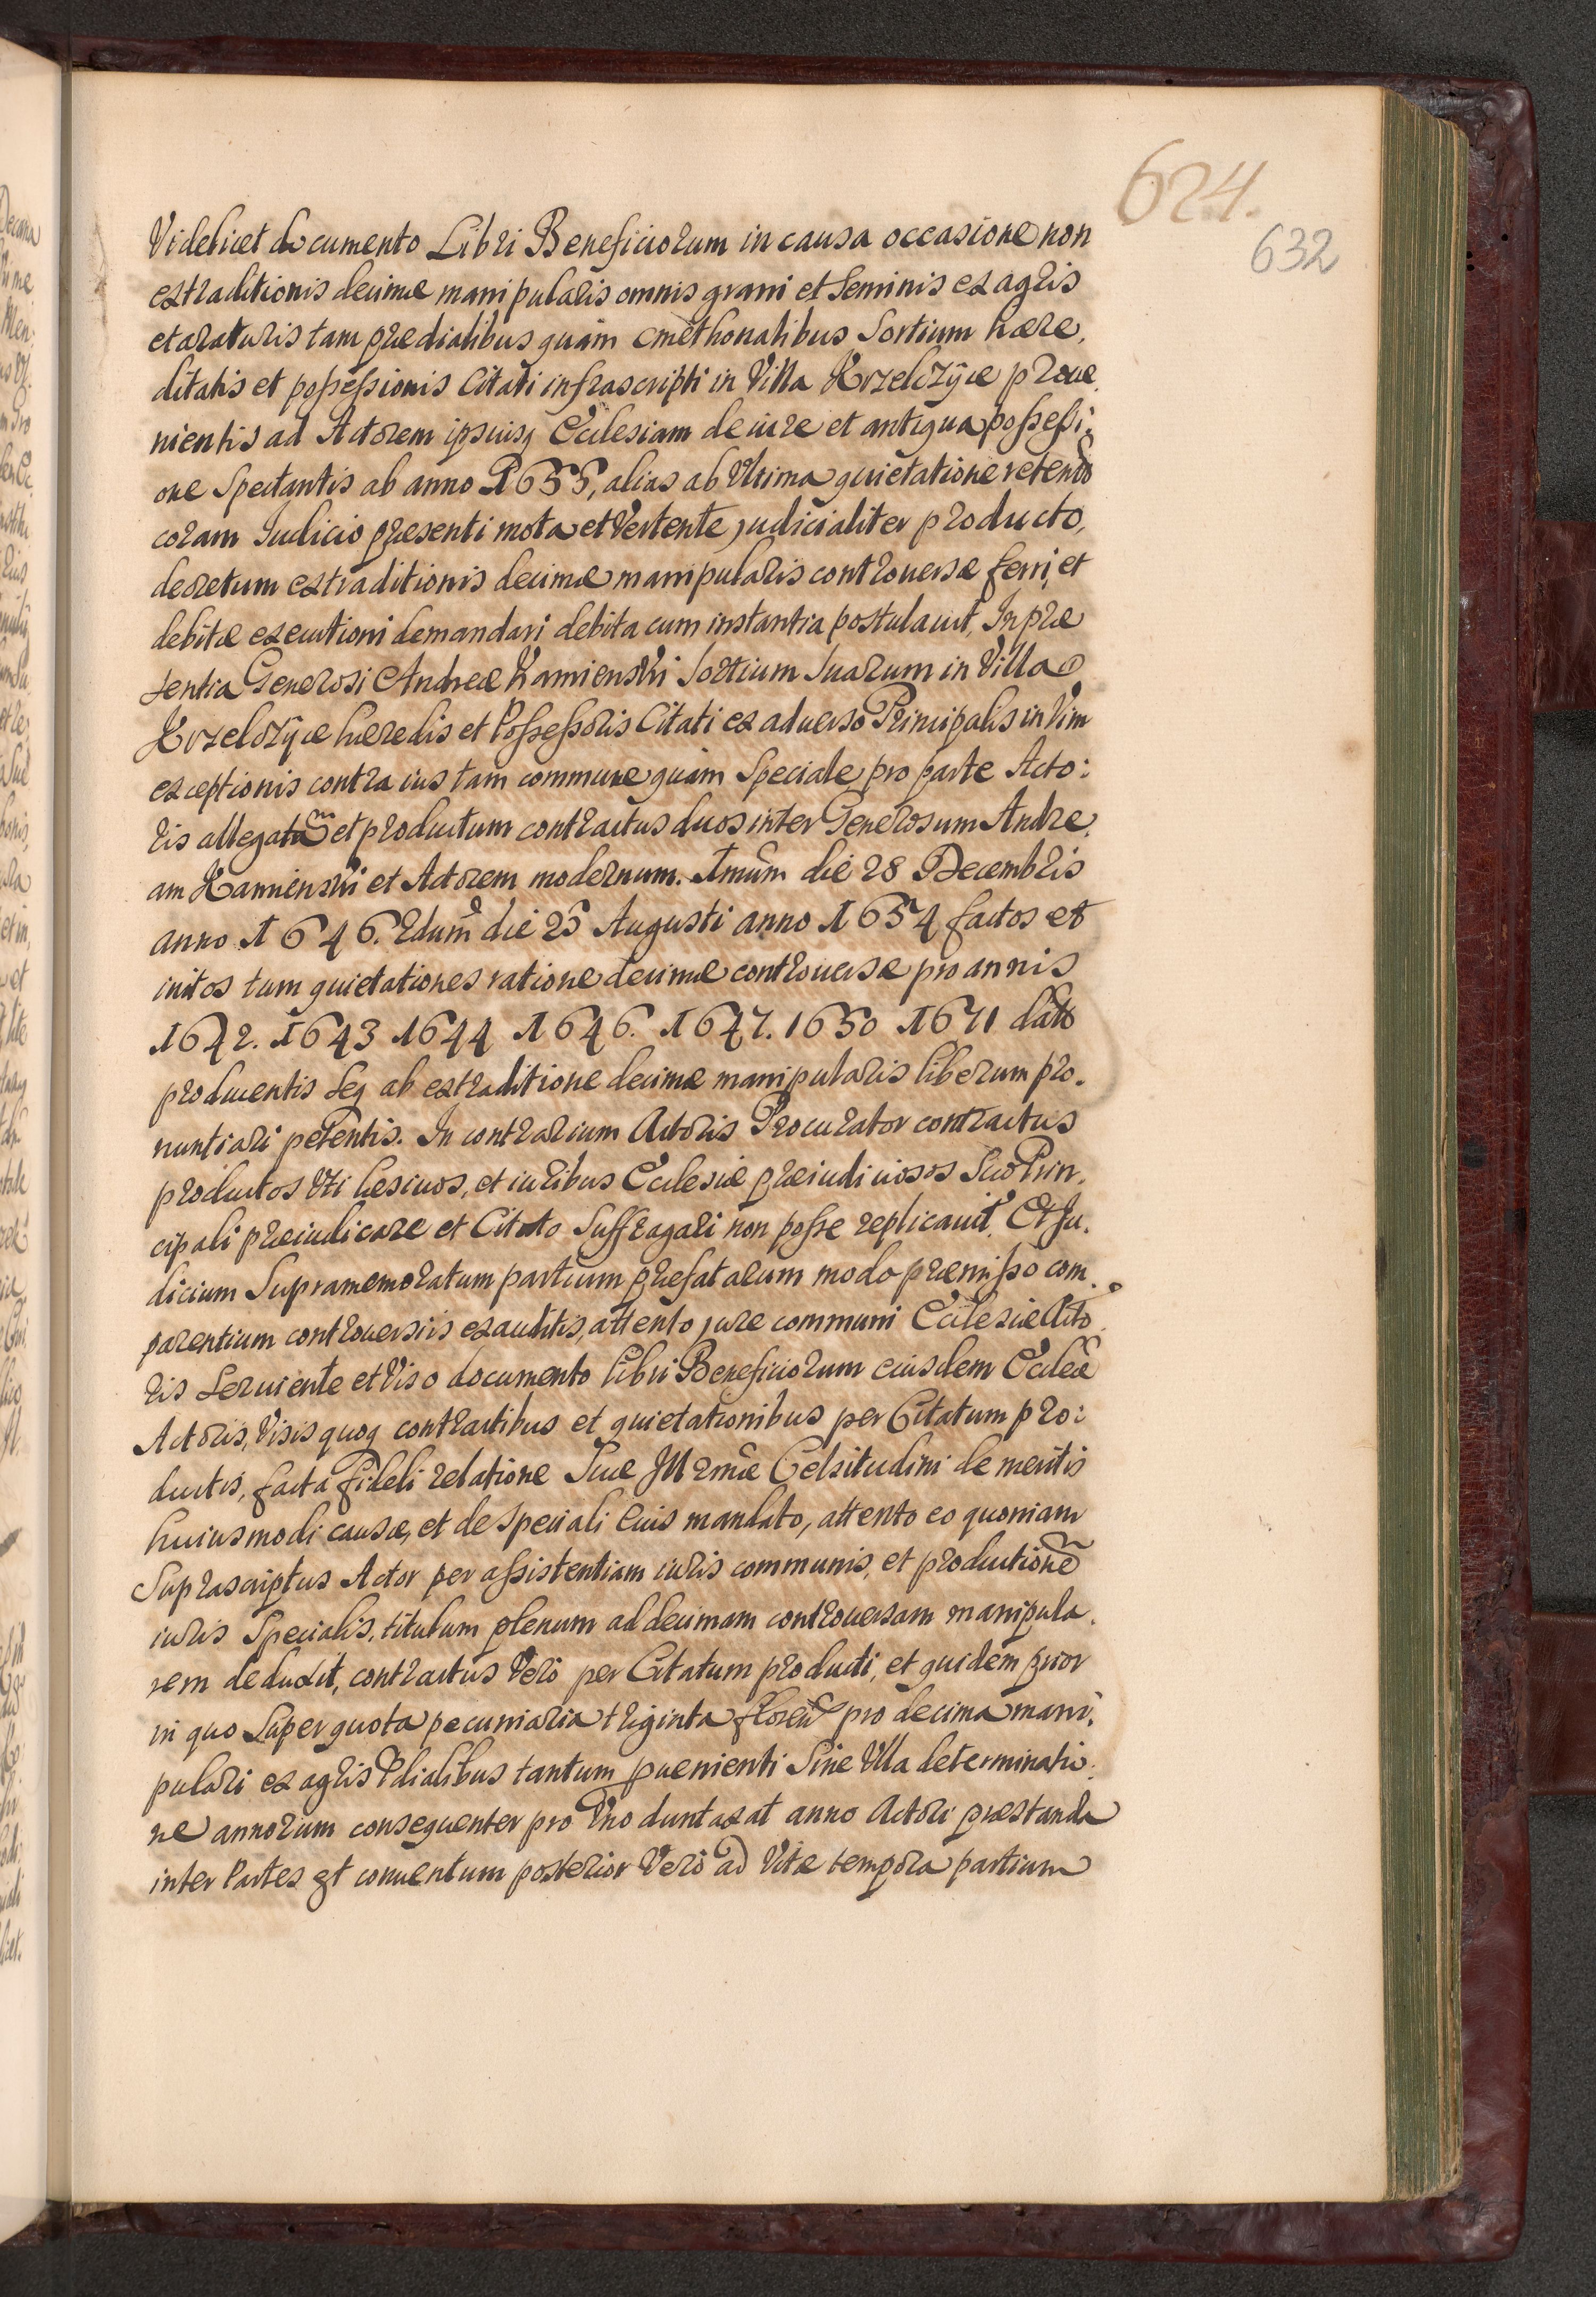 624.
632
Videlicet documento Libri Beneficiorum in causa occasione non
extraditionis decimæ manipularis omnis grani et Seminis ex agris
et araturis tam prædialibus quàm cmethonalibus Sortium hære,
ditatis et possessionis Citati infrascripti in Villa Krzelczÿce proue,
nientis ad Actorem ipsiusq Ecclesiam de iure et antiqua possessi:
one Spectantis ab anno 1655, alias ab Vltima quietatione
coram Iudicio præsenti mota et Vertente judicialiter producto,
decretum extraditionis decimæ manipularis controuersæ ferri, et
debitæ executioni demandari debita cum instantia postulauit, In præ
sentia Generosi Andreæ Kamienski Sortium Suarum in Villa
Krzelczÿce hæredis et Possessoris Citati ex aduerso Principalis in Vim
exceptionis contra ius tam commune quàm Speciale pro parte Acto:
ris allegatũ et productum contractus duos inter Generosum Andre,
am Kamienski et Actorem modernum. 1mum die 28 Decembris
anno 1646. 2dum die 25 Augusti anno 1654 factos et
initos tum quietationes ratione decimæ controuersæ pro annis
1642. 1643 1644 1646. 1647. 1650 1671 datas
producentis Seq ab extraditione decimæ manipularis liberum pro,
nuntiari petentis. In contrarium Actoris Procurator contractus
productos Vti læsiuos, et iuribus Ecclesiæ præiudiciosos Suo Prin,
cipali præiudicare et Citato Suffragari non posse replicauit. Et Iu,
dicium Supramemoratum partium præfatarum modo præmisso com,
parentium controuersiis exauditis, attento jure communi Ecclesiæ Acto,
ris Seruiente et Viso documento libri Beneficiorum eiusdem Eccleæ
Actoris, Visis quoq contractibus et quietationibus per Citatum pro:
ductis, facta fideli relatione Suæ Illrmæ Celsitudini de meritis
huiusmodi causæ, et de speciali Eius mandato, attento eo quoniam
Suprascriptus Actor per assistentiam iuris communis, et productionẽ
iuris Specialis, titulum plenum ad decimam controuersam manipula,
rem deduxit, contractus Verò per Citatum producti, et quidem prior
in quo Super quota pecuniaria triginta floren pro decima mani,
pulari ex agris Pdialibus tantum puenienti Sine Vlla determinatio,
ne annorum consequenter pro Vno duntaxat anno Actori præstanda
inter Partes est conuentum posterior Verò ad Vitæ tempora partium